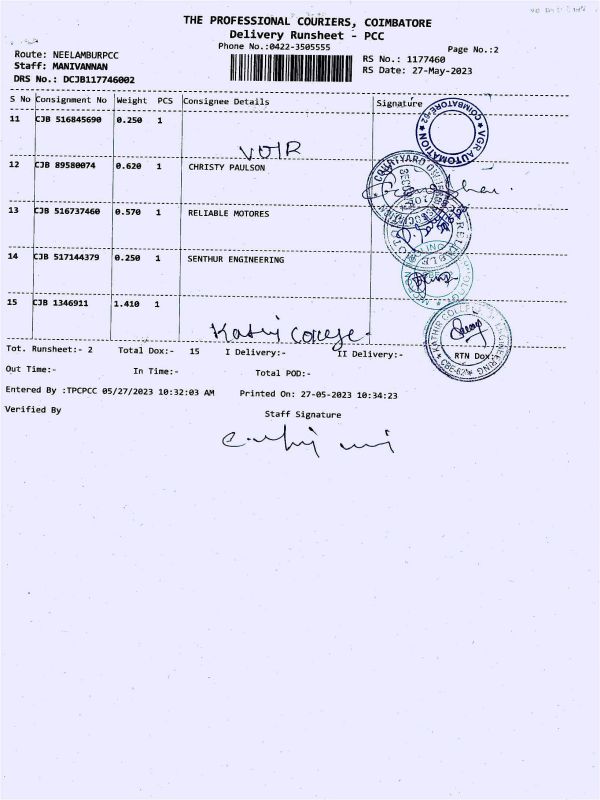 THE PROFESSIONAL COURIERS, COIMBATORE
Delivery Runsheet - PCC
Phone No.:0422-3505555
Page No.:2
Route: NEELAMBURPCC
RS No.: 1177460
Staff: MANIVANNAN
RS Date: 27-May-2023
DRS No.: DCJB117746002
S No Consignment No Weight PCS Consignee Details Signature
11 CJB 516845690 0.250 1
VGR AUTOMATION
COIMBATORE-62
12 CJB 89580074 0.620 1 CHRISTY PAULSON
COURTYARD
13 CJB 516737460 0.570 1 RELIABLE MOTORES
RELIABLE
14 CJB 517144379 0.250 1 SENTHUR ENGINEERING
15 CJB 1346911 1.410 1
Kathir College
KATHIR COLLEGE OF ENGINEERING
CBE-62
Tot. Runsheet:- 2 Total Dox:- 15 I Delivery:- II Delivery:- RTN Dox:
Out Time:- In Time:- Total POD:-
Entered By :TPCPCC 05/27/2023 10:32:03 AM Printed On: 27-05-2023 10:34:23
Verified By
Staff Signature